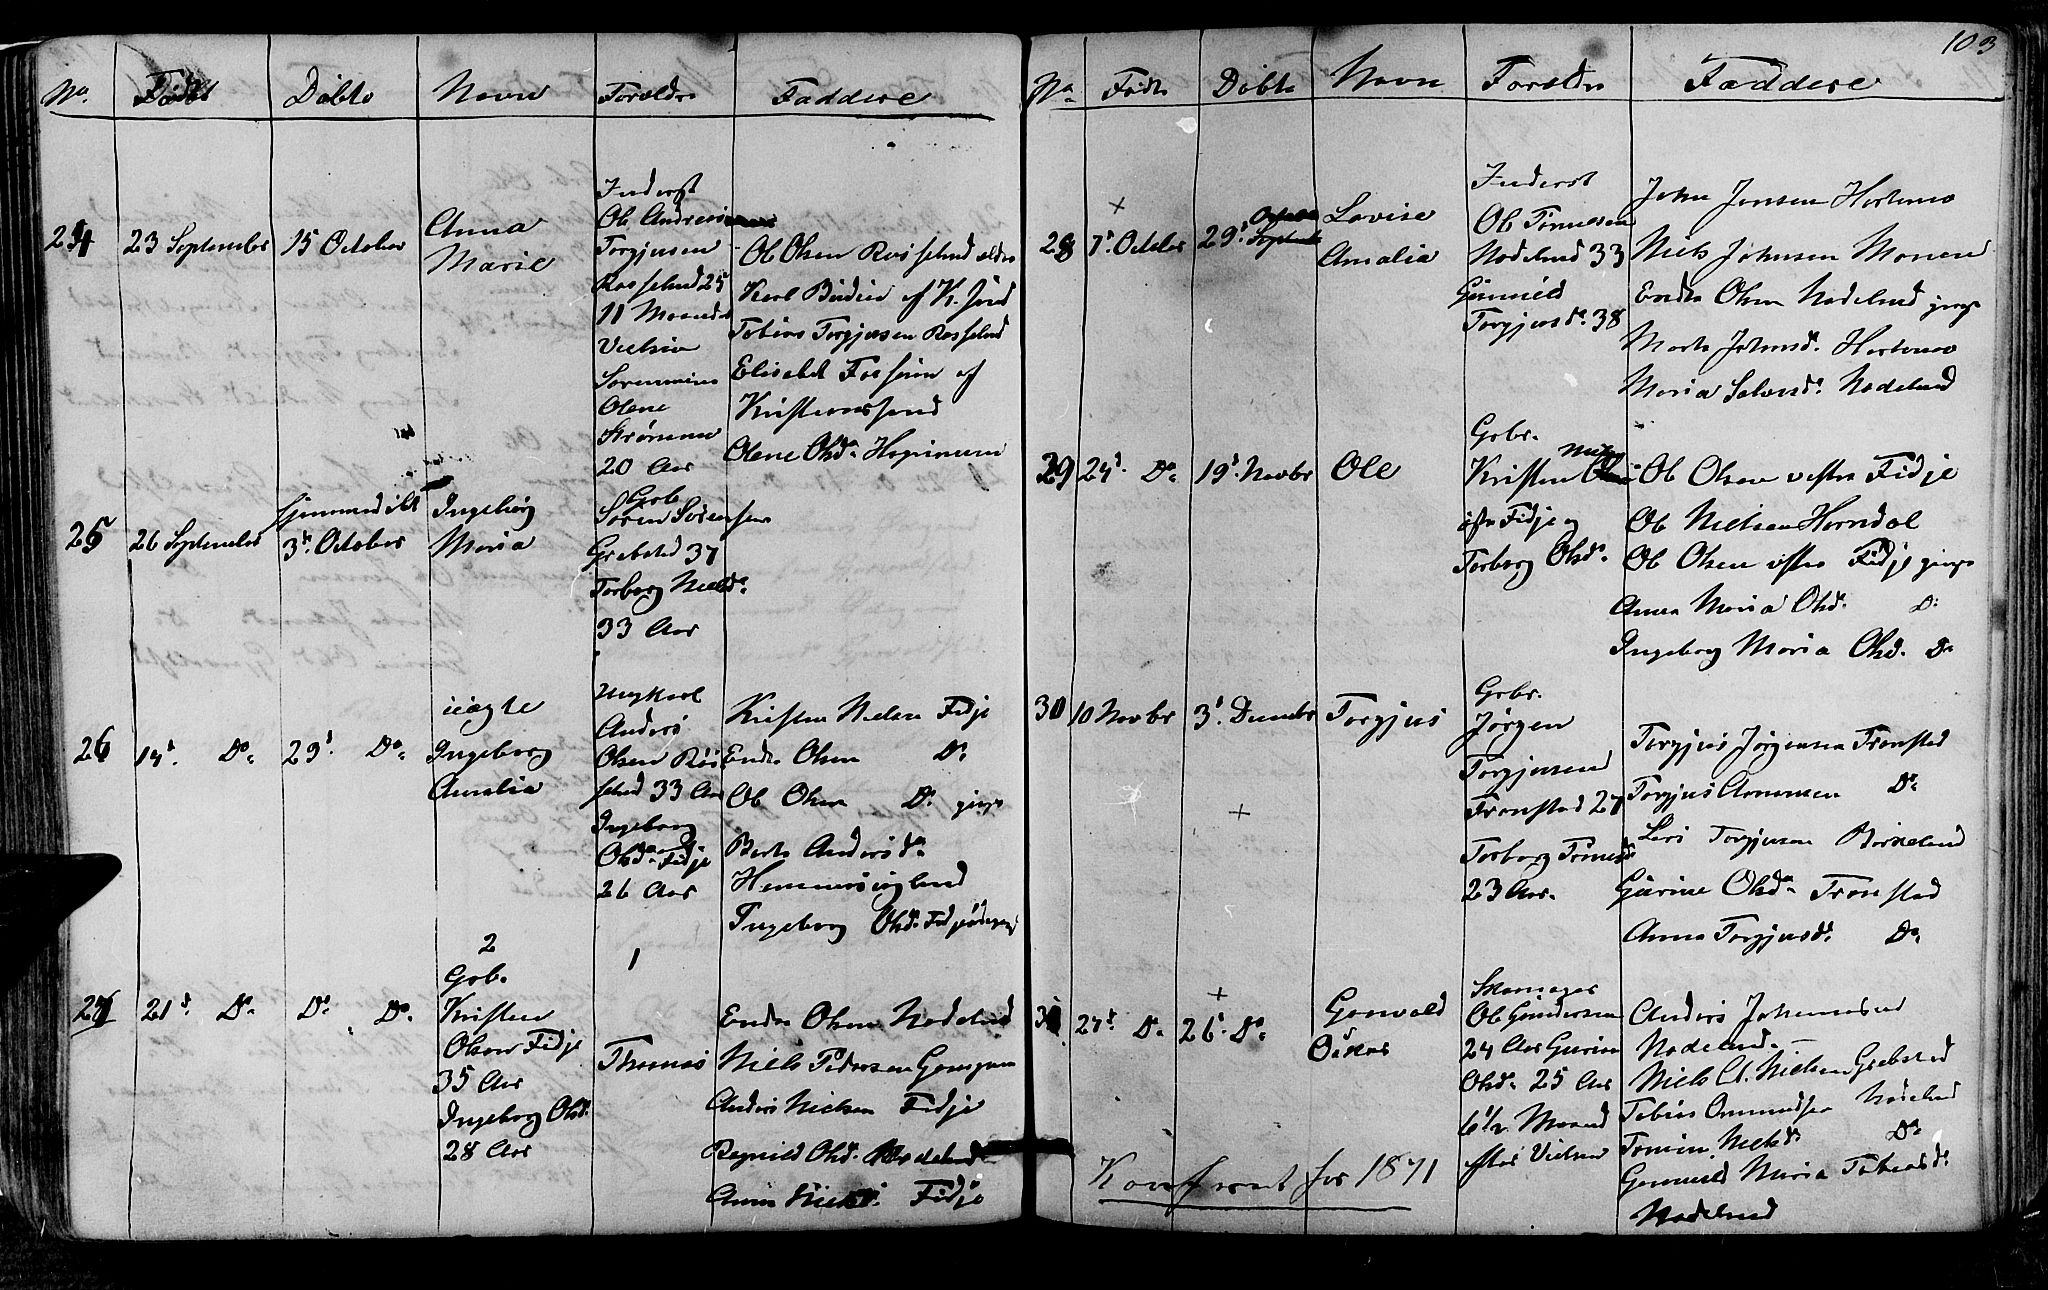 103
No. Født Døbte Navn Forældre Faddere
24 23 September 15 October Anna
Marie
Inderst
Ole Andreas
Torgjusen
Rosseland 25
11 Maaneder
Vielsia
Olene
Strømme
20 Aar
Ole Olsen Rosseland ældre
Karl af K. sand
Tobias Torgjusen Rosseland
Elisabet af
Kristiansand
Olene Olsd.
25 26 September hjemmedøbt
3die October
Ingeborg
Maria
Gbr.
Søren Sørensen
Grebsted 37
Torborg Nielsd.
33 Aar
26 14de Do. 29de Do. uægte
Ingeborg
Amalia
Ungkarl
Anders
Olsen Ros
seland 33 Aar
Ingeborg
Olsd. Fidje
26 Aar
Kristen Nielsen Fidje
Endre Olsen Do.
Ole Olsen Do. yngre
Berte Andersd.
Ingeborg Olsd. Fidje
2
1
27 21de Do. Do. Do. Gbr.
Kristen
Olsen Fidje
35 Aar
Ingeborg Olsd.
28 Aar
Thomas
Endre Olsen Nodeland
Niels Pedersen
Anders Nielsen Fidje
Ragnild Olsd. Nodeland
Anna Nielsd. Fidje
No. Født Døbte Navn Forældre Faddere
28 7de October 29de October Lovise
Amalia
Inderst
Ole Tønnesen
Nodeland 33
Gunnild
Torgjusd. 38
John Jensen Hortemo
Niels Johnsen Monen
Endre Olsen Nodeland yngre
Marte Johnsd. Hortemo
Maria Salvesd. Nodeland
29 24de Do. 19de Novbr Ole
Gbr.
Kristen Nielsen
østre Fidje og
Torborg Olsd.
Ole Olsen vestre Fidje
Ole Nielsen Horndal
Ole Olsen østre Fidje yngre
Anna Maria Olsd. Do.
Ingeborg Maria Olsd. Do.
30 10 Novbr 3de Decembr Torgjus
Gbr.
Jørgen
Torgjusen
Tronstad 27
Torborg Tønnesd.
23 Aar
Torgjus Jørgensen Tronstad
Torgjus Aanensen Do.
Lars Torgjusen Birkeland
Gurine Olsd. Tronstad
Anna Torgjusd. Do.
31 27de Do. 26de Do. Gonvald
Oskar
Skomager
Ole Gundersen
24 Aar Gurine
Olsd. 25 Aar
6 1/2 Maaned
efter Vielsen
Anders Johannesen
Nodeland
Niels A. Nielsen Grebsted
Tobias Ommundsen Nodeland
Nielsd. Do.
Gunnild Maria Tobiasd.
Nodeland
Konfereret for 1871